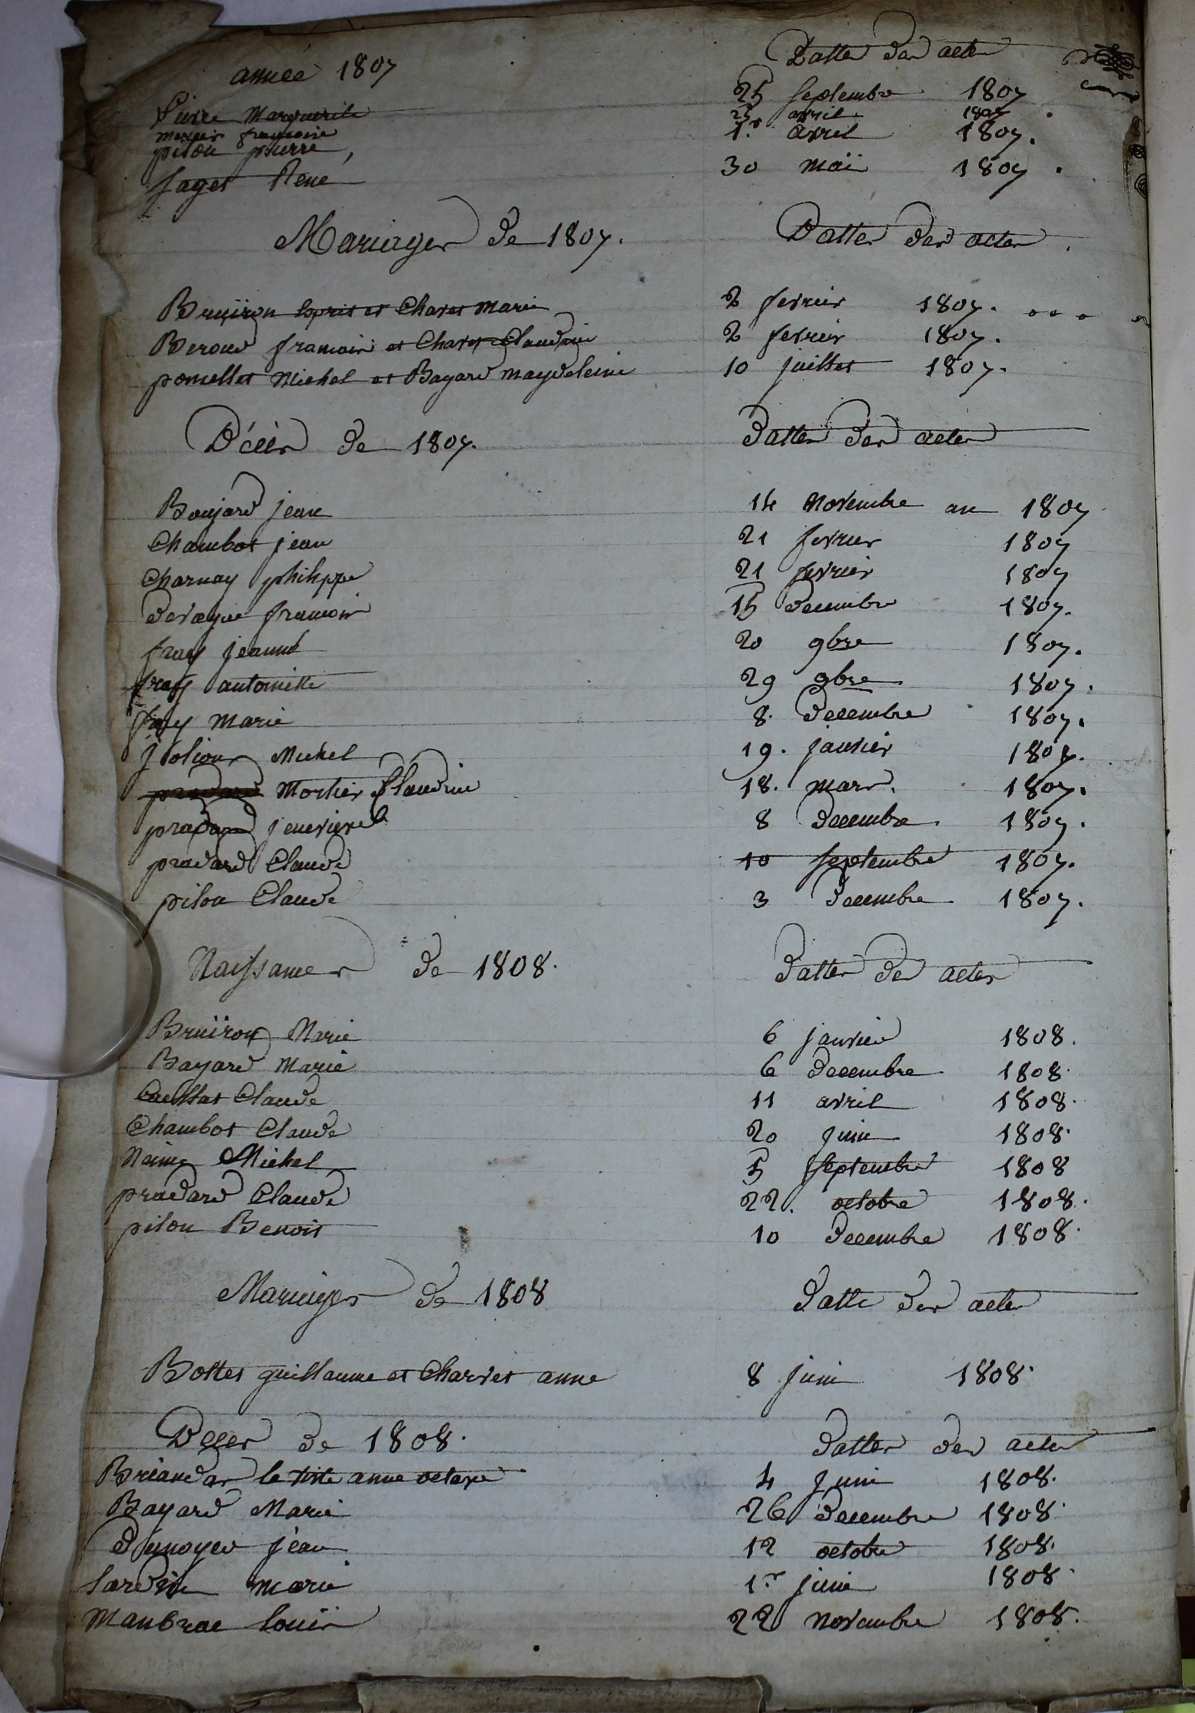 année 1807 Datte des actes
Pierre Marguerite 25 septembre 1807
mercier françoise 25 avril 1807
pilon pierre, 1.er avril 1807.
faget René 30 maii 1807.
Mariages de 1807. Dattes des actes.
Bruïron Esprit et Charet Marie 2 fevrier 1807.
Beroud francois et Charet Claudine 2 fevrier 1807.
pomellet Michel et Bayard magdeleine 10 juillet 1807.
Décès de 1807. dattes des actes
Boujard jean 14 novembre an 1807
Chambot jean 21 fevrier 1807
Charnay philippe 21 fevrier 1807
francois 15 decembre 1807.
fray jeanne 20 9bre 1807.
fray antoinette 29 9bre 1807.
fray Marie 8. Decembre 1807.
Michel 19. janvier 1807.
pradard Mortier Claudine 18. mars. 1807.
pradard jeneviève 8 Decembre. 1807.
pradard Claude 10 septembre 1807.
pilon Claude 3 Decembre 1807.
Naissances de 1808. dattes des actes
Bruïron Marie 6 janvier 1808.
Bayard Marie 6 Decembre 1808.
Claude 11 avril 1808.
Chambot Claude 20 juin 1808.
Michel 5 septembre 1808
pradard Claude 22. octobre 1808.
pilon Benoit 10 Decembre 1808.
Mariages de 1808 datte des actes
Bottet guillaume et Charvet anne 8 juin 1808.
Deces de 1808. dattes des actes
Briandas le anne octave 4 juin 1808.
Bayard Marie 26 decembre 1808.
Dunoyer jean 12 octobre 1808.
Sardin Marie 1.er juin 1808.
Maubrac louis 22 novembre 1808.